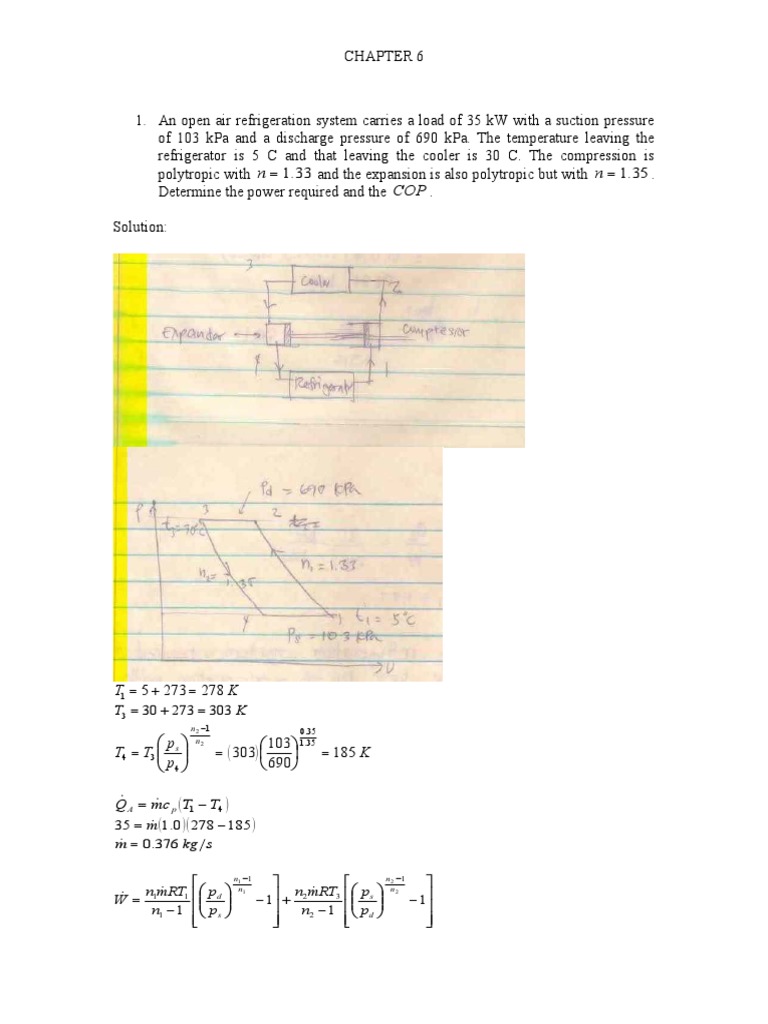 CHAPTER 6
1. An open air refrigeration system carries a load of 35 kW with a suction pressure
of 103 kPa and a discharge pressure of 690 kPa. The temperature leaving the
refrigerator is 5 C and that leaving the cooler is 30 C. The compression is
polytropic with n = 1.33 and the expansion is also polytropic but with n = 1.35 .
Determine the power required and the COP .
Solution:
3
Cooler
2
Expander
Compressor
4
1
Refrigerator
Pd = 690 KPa
P
3
2
t3 = 30°C
t2 =
n1 = 1.33
n2 = 1.35
4
1
t1 = 5°C
Ps = 103 KPa
V
T₁ = 5 + 273 = 278 K
T₃ = 30 + 273 = 303 K
T₄ = T₃(p_s/p_4)^((n₂−1)/n₂) = (303)(103/690)^(0.35/1.35) = 185 K
Q̇_A = ṁc_p(T₁ − T₄)
35 = ṁ(1.0)(278 − 185)
ṁ = 0.376 kg/s
Ẇ = n₁ṁRT₁/(n₁ − 1)[(p_d/p_s)^((n₁−1)/n₁) − 1] + n₂ṁRT₃/(n₂ − 1)[(p_s/p_d)^((n₂−1)/n₂) − 1]